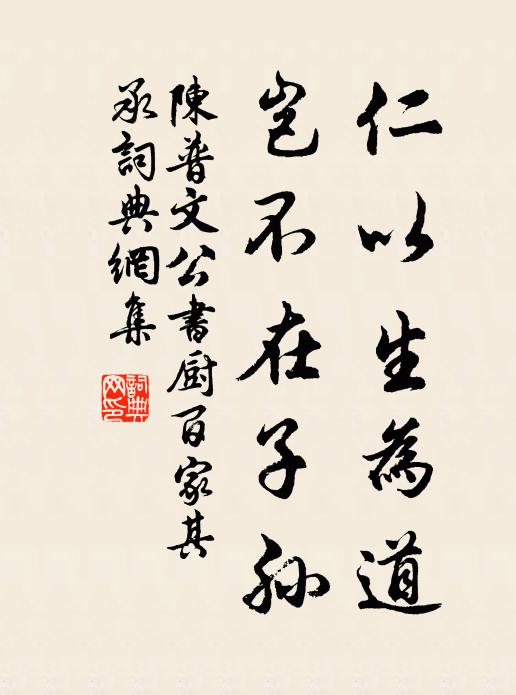 仁以生為道
豈不在子孫
陳普文公書厨百家其
永詞典網集
詞典網印